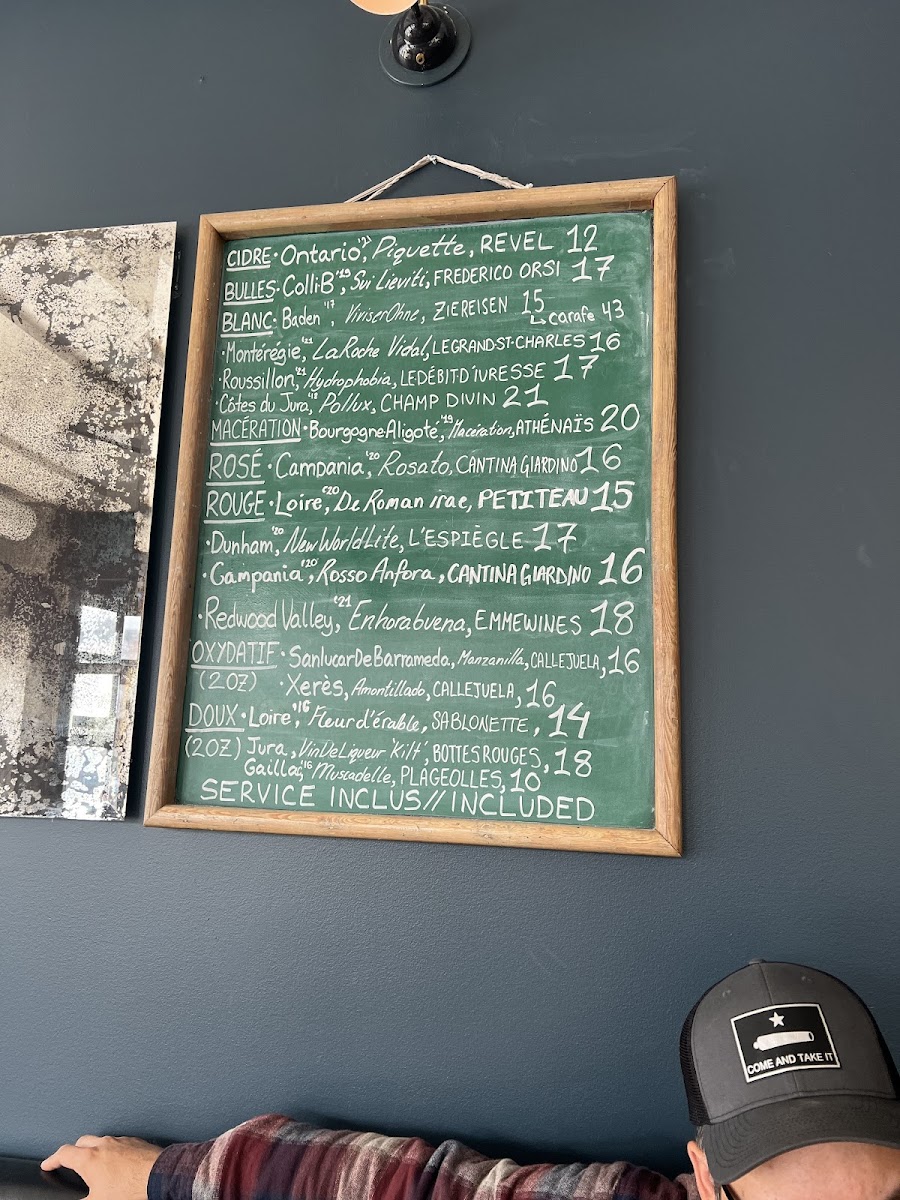 CIDRE · Ontario, '21, Piquette, REVEL 12
BULLES · ColliB '19, Sui Lieviti, FREDERICO ORSI 17
BLANC · Baden '17, ViviserOhne, ZIEREISEN 15
carafe 43
· Montérégie, '21 LaRoche Vidal, LEGRAND-ST-CHARLES 16
· Roussillon, '21 Hydrophobia, LE DÉBIT D'IVRESSE 17
· Côtes du Jura, '18 Pollux, CHAMP DIVIN 21
MACÉRATION · Bourgogne Aligoté, '19 Macération, ATHÉNAÏS 20
ROSÉ · Campania, '20 Rosato, CANTINA GIARDINO 16
ROUGE · Loire, '20 De Roman, PETITEAU 15
· Dunham, '20 New World Lite, L'ESPIÈGLE 17
· Campania '20, Rosso Anfora, CANTINA GIARDINO 16
· Redwood Valley, '21 Enhorabuena, EMME WINES 18
OXYDATIF · Sanlucar De Barrameda, Manzanilla, CALLEJUELA, 16
(2OZ) · Xerès, Amontillado, CALLEJUELA, 16
DOUX · Loire, '16 Fleur d'érable, SABLONETTE, 14
(2OZ) Jura, Vin De Liqueur 'Kilt', BOTTES ROUGES, 18
Gaillac, '16 Muscadelle, PLAGEOLLES, 10
SERVICE INCLUS // INCLUDED
COME AND TAKE IT